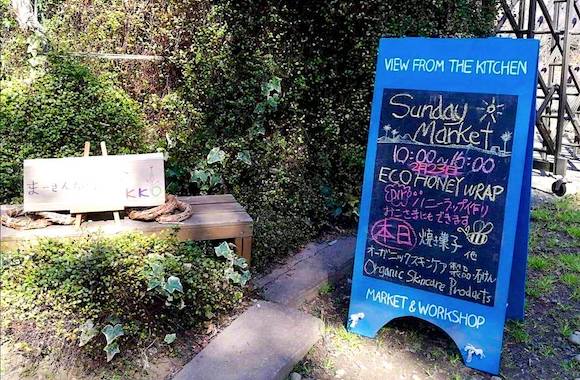 VIEW FROM THE KITCHEN
Sunday
Market
10:00~15:00
2月23日
ECO HONEY WRAP
ハニーラップ作り
おこさまもできます
本日 焼菓子 他
オーガニックスキンケア製品
Organic Skincare Products
MARKET & WORKSHOP
KKO